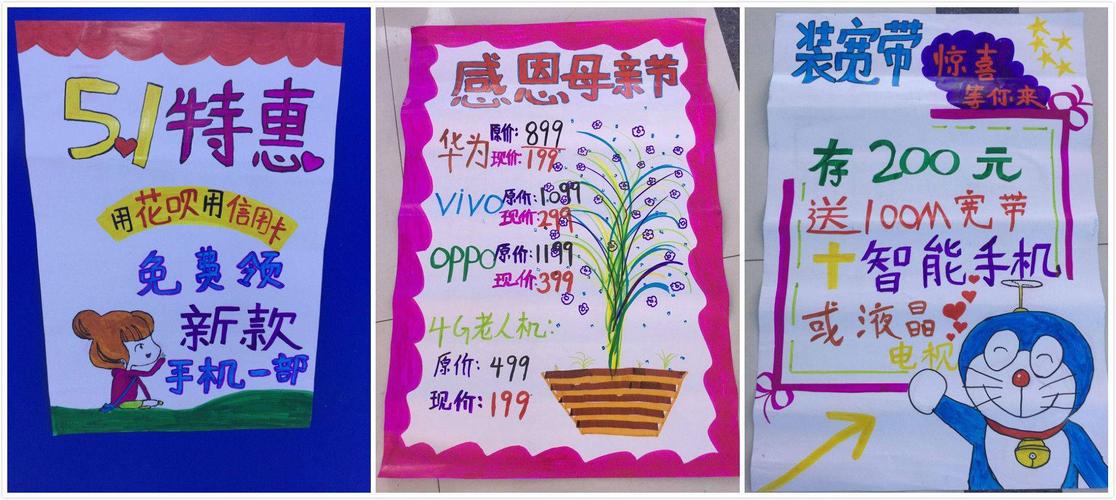 5.1特惠
用花呗用信用卡
免费领
新款
手机一部
感恩母亲节
华为
原价:899
现价:199
vivo
原价:1099
现价:299
oppo
原价:1199
现价:399
4G老人机:
原价:499
现价:199
装宽带
惊喜
等你来
存200元
送100M宽带
+智能手机
或液晶
电视